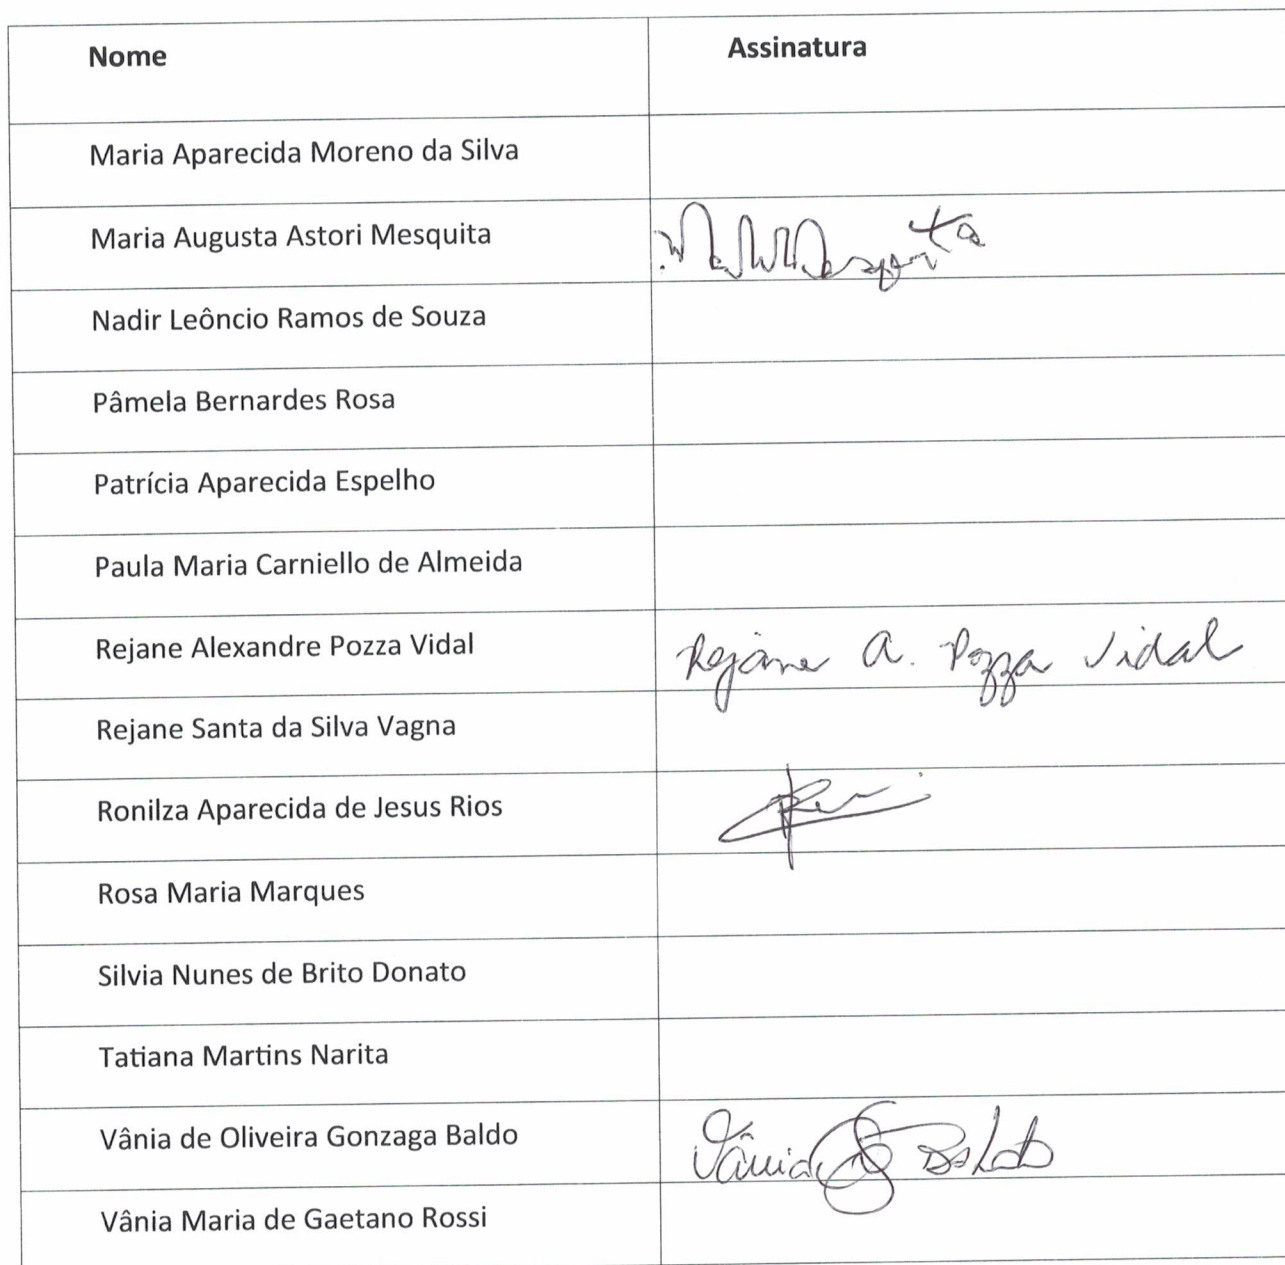 Nome Assinatura
Maria Aparecida Moreno da Silva
Maria Augusta Astori Mesquita
Nadir Leôncio Ramos de Souza
Pâmela Bernardes Rosa
Patrícia Aparecida Espelho
Paula Maria Carniello de Almeida
Rejane Alexandre Pozza Vidal Rejane A. Pozza Vidal
Rejane Santa da Silva Vagna
Ronilza Aparecida de Jesus Rios
Rosa Maria Marques
Silvia Nunes de Brito Donato
Tatiana Martins Narita
Vânia de Oliveira Gonzaga Baldo Vânia Baldo
Vânia Maria de Gaetano Rossi